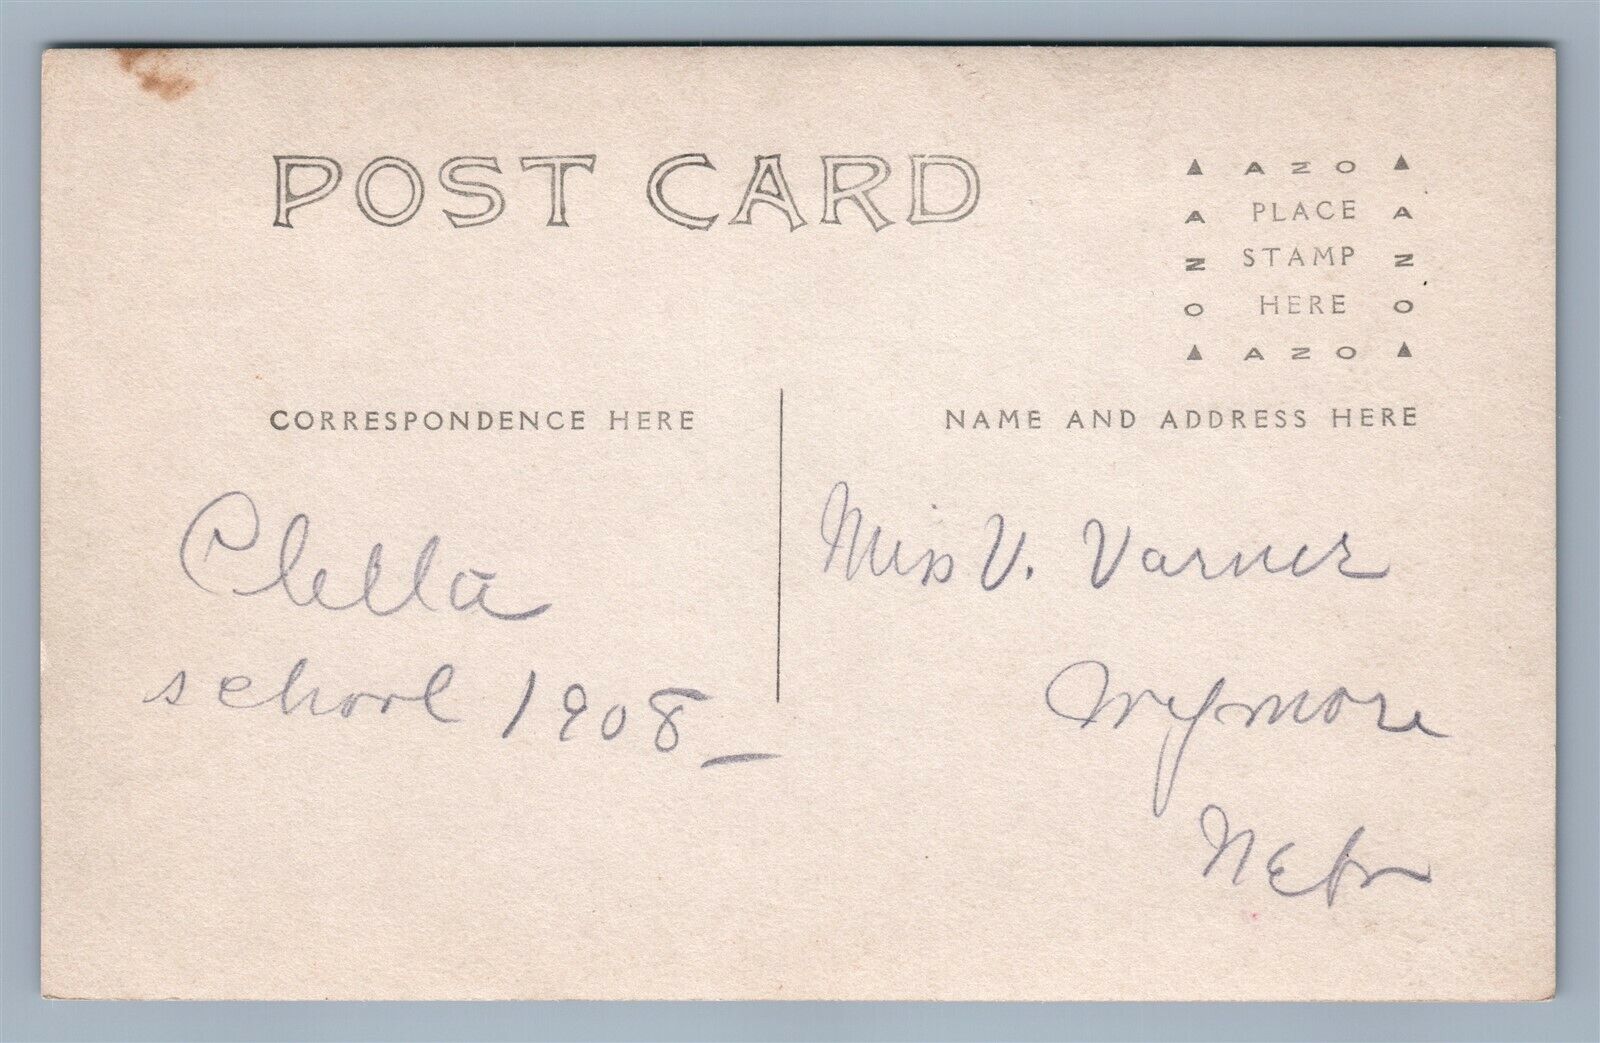 POST CARD
▲ AZO ▲
A PLACE A
Z STAMP Z
O HERE O
▲ AZO ▲
CORRESPONDENCE HERE
NAME AND ADDRESS HERE
Clella
school 1908
Miss V. Varner
Wymore
Nebr